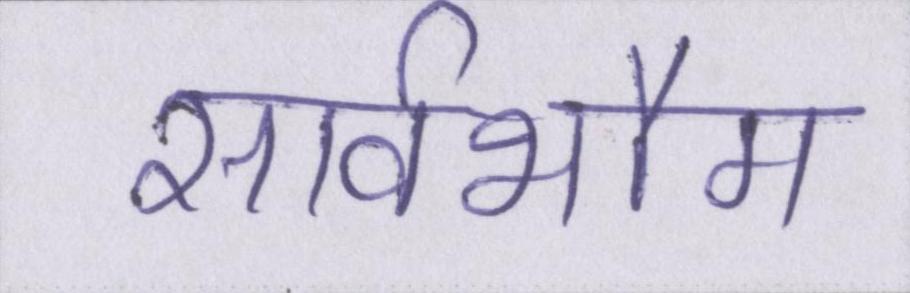 सार्वभौम